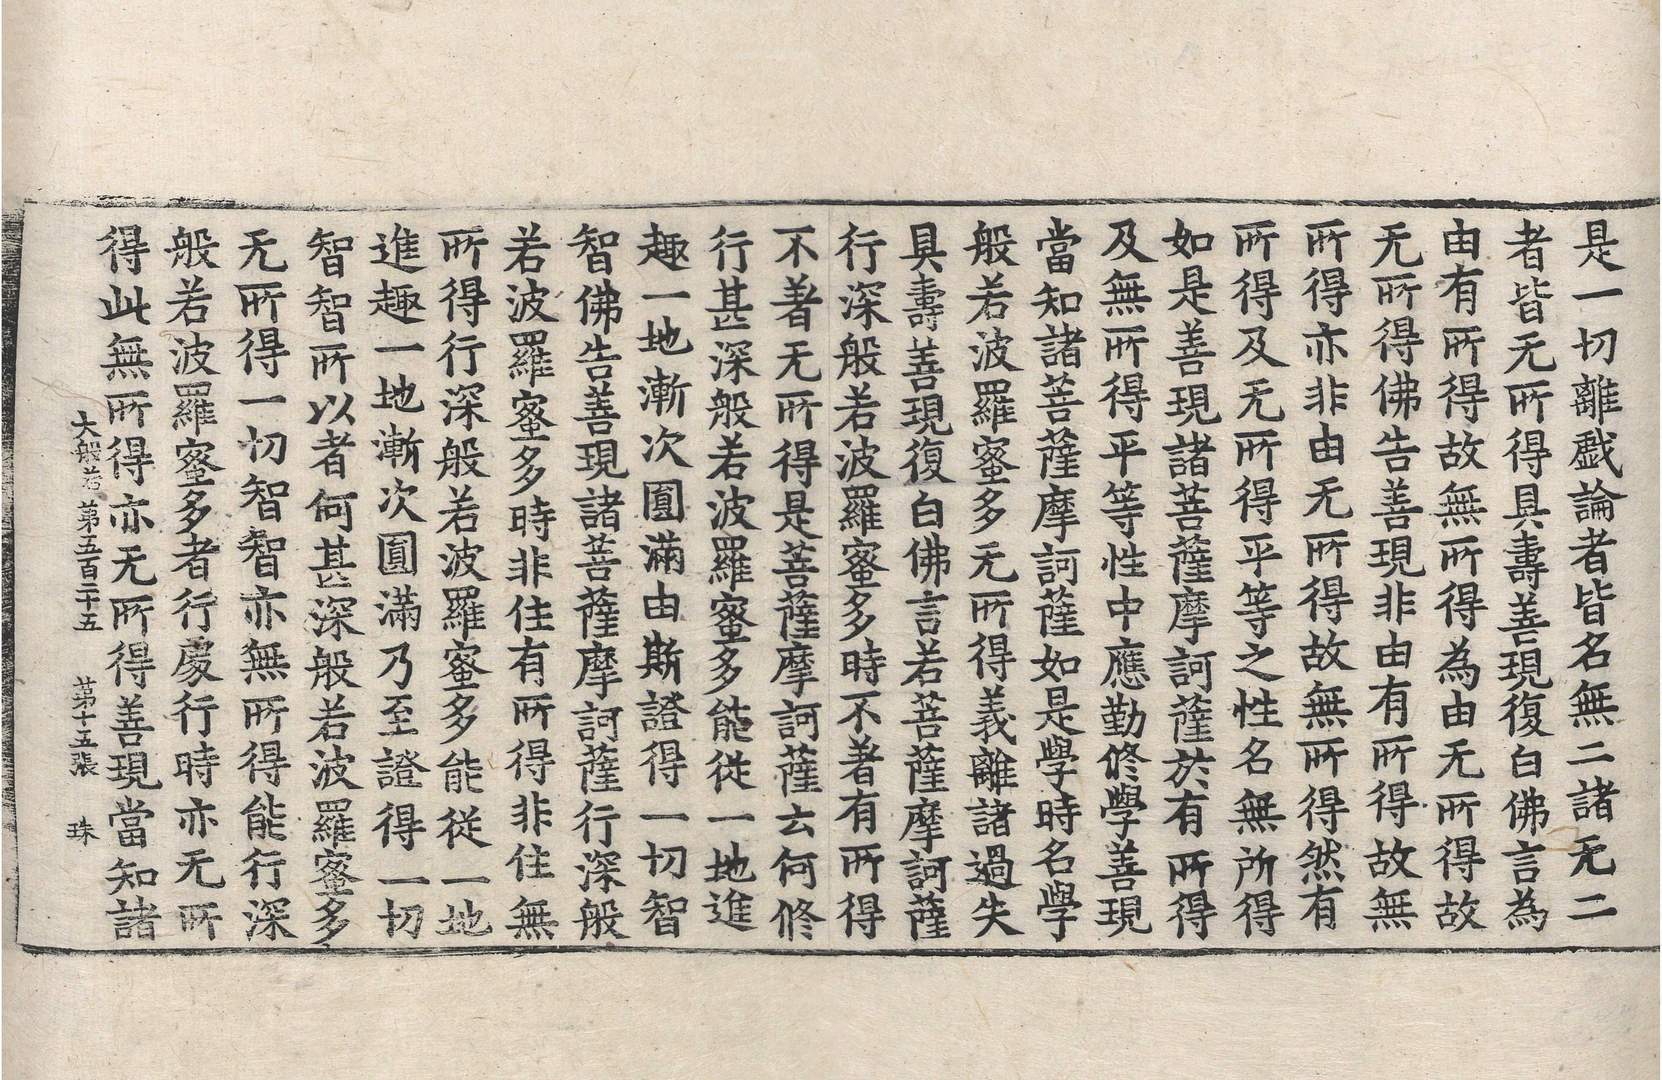 是一切離戲論者皆名無二諸无二
者皆无所得具壽善現復白佛言為
由有所得故無所得為由无所得故
无所得佛告善現非由有所得故無
所得亦非由无所得故無所得然有
所得及无所得平等之性名無所得
如是善現諸菩薩摩訶薩於有所得
及無所得平等性中應勤修學善現
當知諸菩薩摩訶薩如是學時名學
般若波羅蜜多无所得義離諸過失
具壽善現復白佛言若菩薩摩訶薩
行深般若波羅蜜多時不著有所得
不著无所得是菩薩摩訶薩云何修
行甚深般若波羅蜜多能從一地進
趣一地漸次圓滿由斯證得一切智
智佛告善現諸菩薩摩訶薩行深般
若波羅蜜多時非住有所得非住無
所得行深般若波羅蜜多能從一地
進趣一地漸次圓滿乃至證得一切
智智所以者何甚深般若波羅蜜多
无所得一切智智亦無所得能行深
般若波羅蜜多者行處行時亦无所
得此無所得亦无所得善現當知諸
大般若第五百二十五 第十五張 珠